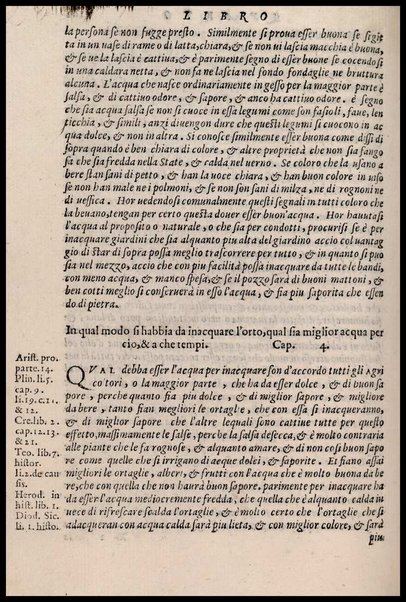 LIBRO
la persona se non fugge presto. Similmente si proua esser buona se si getta
ta in un uase di rame o di latta, chiara, & se non ui lascia macchia è buona,
& se ue la lascia è cattiua, & è parimente segno di esser buone se cocendosi
in una caldara netta, & non fa ne lascia nel fondo fondaglie ne bruttura
alcuna. L'acqua che nasce ordinariamente in gesso per la maggior parte è
salsa, & di cattiuo odore, & sapore, & anco ha cattiuo odore. è segno
che sia acqua salsa se non si cuoce in essa legumi come son fasioli, faue, len
ticchia, & simili, anzi diuengon dure che questi legumi si cuocono in ac
qua dolce, & non in altra. Si conosce similmente esser buona come dissi di
sopra quando è ben chiara di colore, & altre proprietà che non sia fango
sa che sia fredda nella State, & calda nel uerno. Se coloro che la usano a
bere stan sani di petto, & han la uoce chiara, & han buon colore in uiso
se non han male ne i polmoni, & se non son sani di milza, ne di rognoni ne
di uessica. Hor uedendosi comunalmente questi segnali in tutti coloro che
la beuano, tengan per certo questa douer esser buon'acqua. Hor hauutasi
l'acqua al proposito o naturale, o che sia per condotti, procurisi se è per
inacquare giardini che sia alquanto piu alta del giardino accio col uantag
gio di star di sopra possa meglio trascorrere per tutto, & in quanto si puo
sia nel mezzo, accio che con piu facilità possa inacquare da tutte le bandi,
con meno acqua, & manco spesa, & se il pozzo sarà di buoni mattoni, &
ben cotti meglio si conseruerà in esso l'acqua, & sia piu saporita che essen
do di pietra.
In qual modo si habbia da inacquare l'orto, qual sia miglior acqua per
cio, & a che tempi. Cap. 4.
Arist. pro.
parte. 14.
Plin. li. 5.
cap. 9.
li. 19. c. 11.
& 12.
Cre. lib. 2.
cap. 12. 13.
& 21.
Teo. lib. 7.
histor.
li. 2. de cau
sis.
Herod. in
hist. lib. 1.
Diod. Sic.
li. 1. histo.
QVAL debba esser l'acqua per inacquare son d'accordo tutti gli Agri
cotori, o la maggior parte, che ha da esser dolce, & di buon sa
pore, perche quanto sia piu dolce, & di miglior sapore, & migliore
da bere, tanto sian megliori le ortaglie, che con essa si inacqueranno,
& di miglior sapore che l'altre lequali sono cattiue tutte per questo
effetto, massimamente le salse, perche la salsa desecca, & è molto contraria
alle piante che le fa rognose, & alquanto amare, & di non cosi buon sapo
re come quelle che si irrigano di acque dolci, & saporite. Et siano assai
migliori le ortaglie, alberi, & frutti con l'acqua che è molto buona da be
re, che con quella che non haurà buon sapore. parimente per inacquare ha
da esser l'acqua mediocremente fredda, che quella che è alquanto calda in
uece di rifrescare scalda l'ortaglie, & è molto certo che l'ortaglie che si
adacqueran con acqua calda sarà piu lieta, & con miglior colore, & sarà
piu